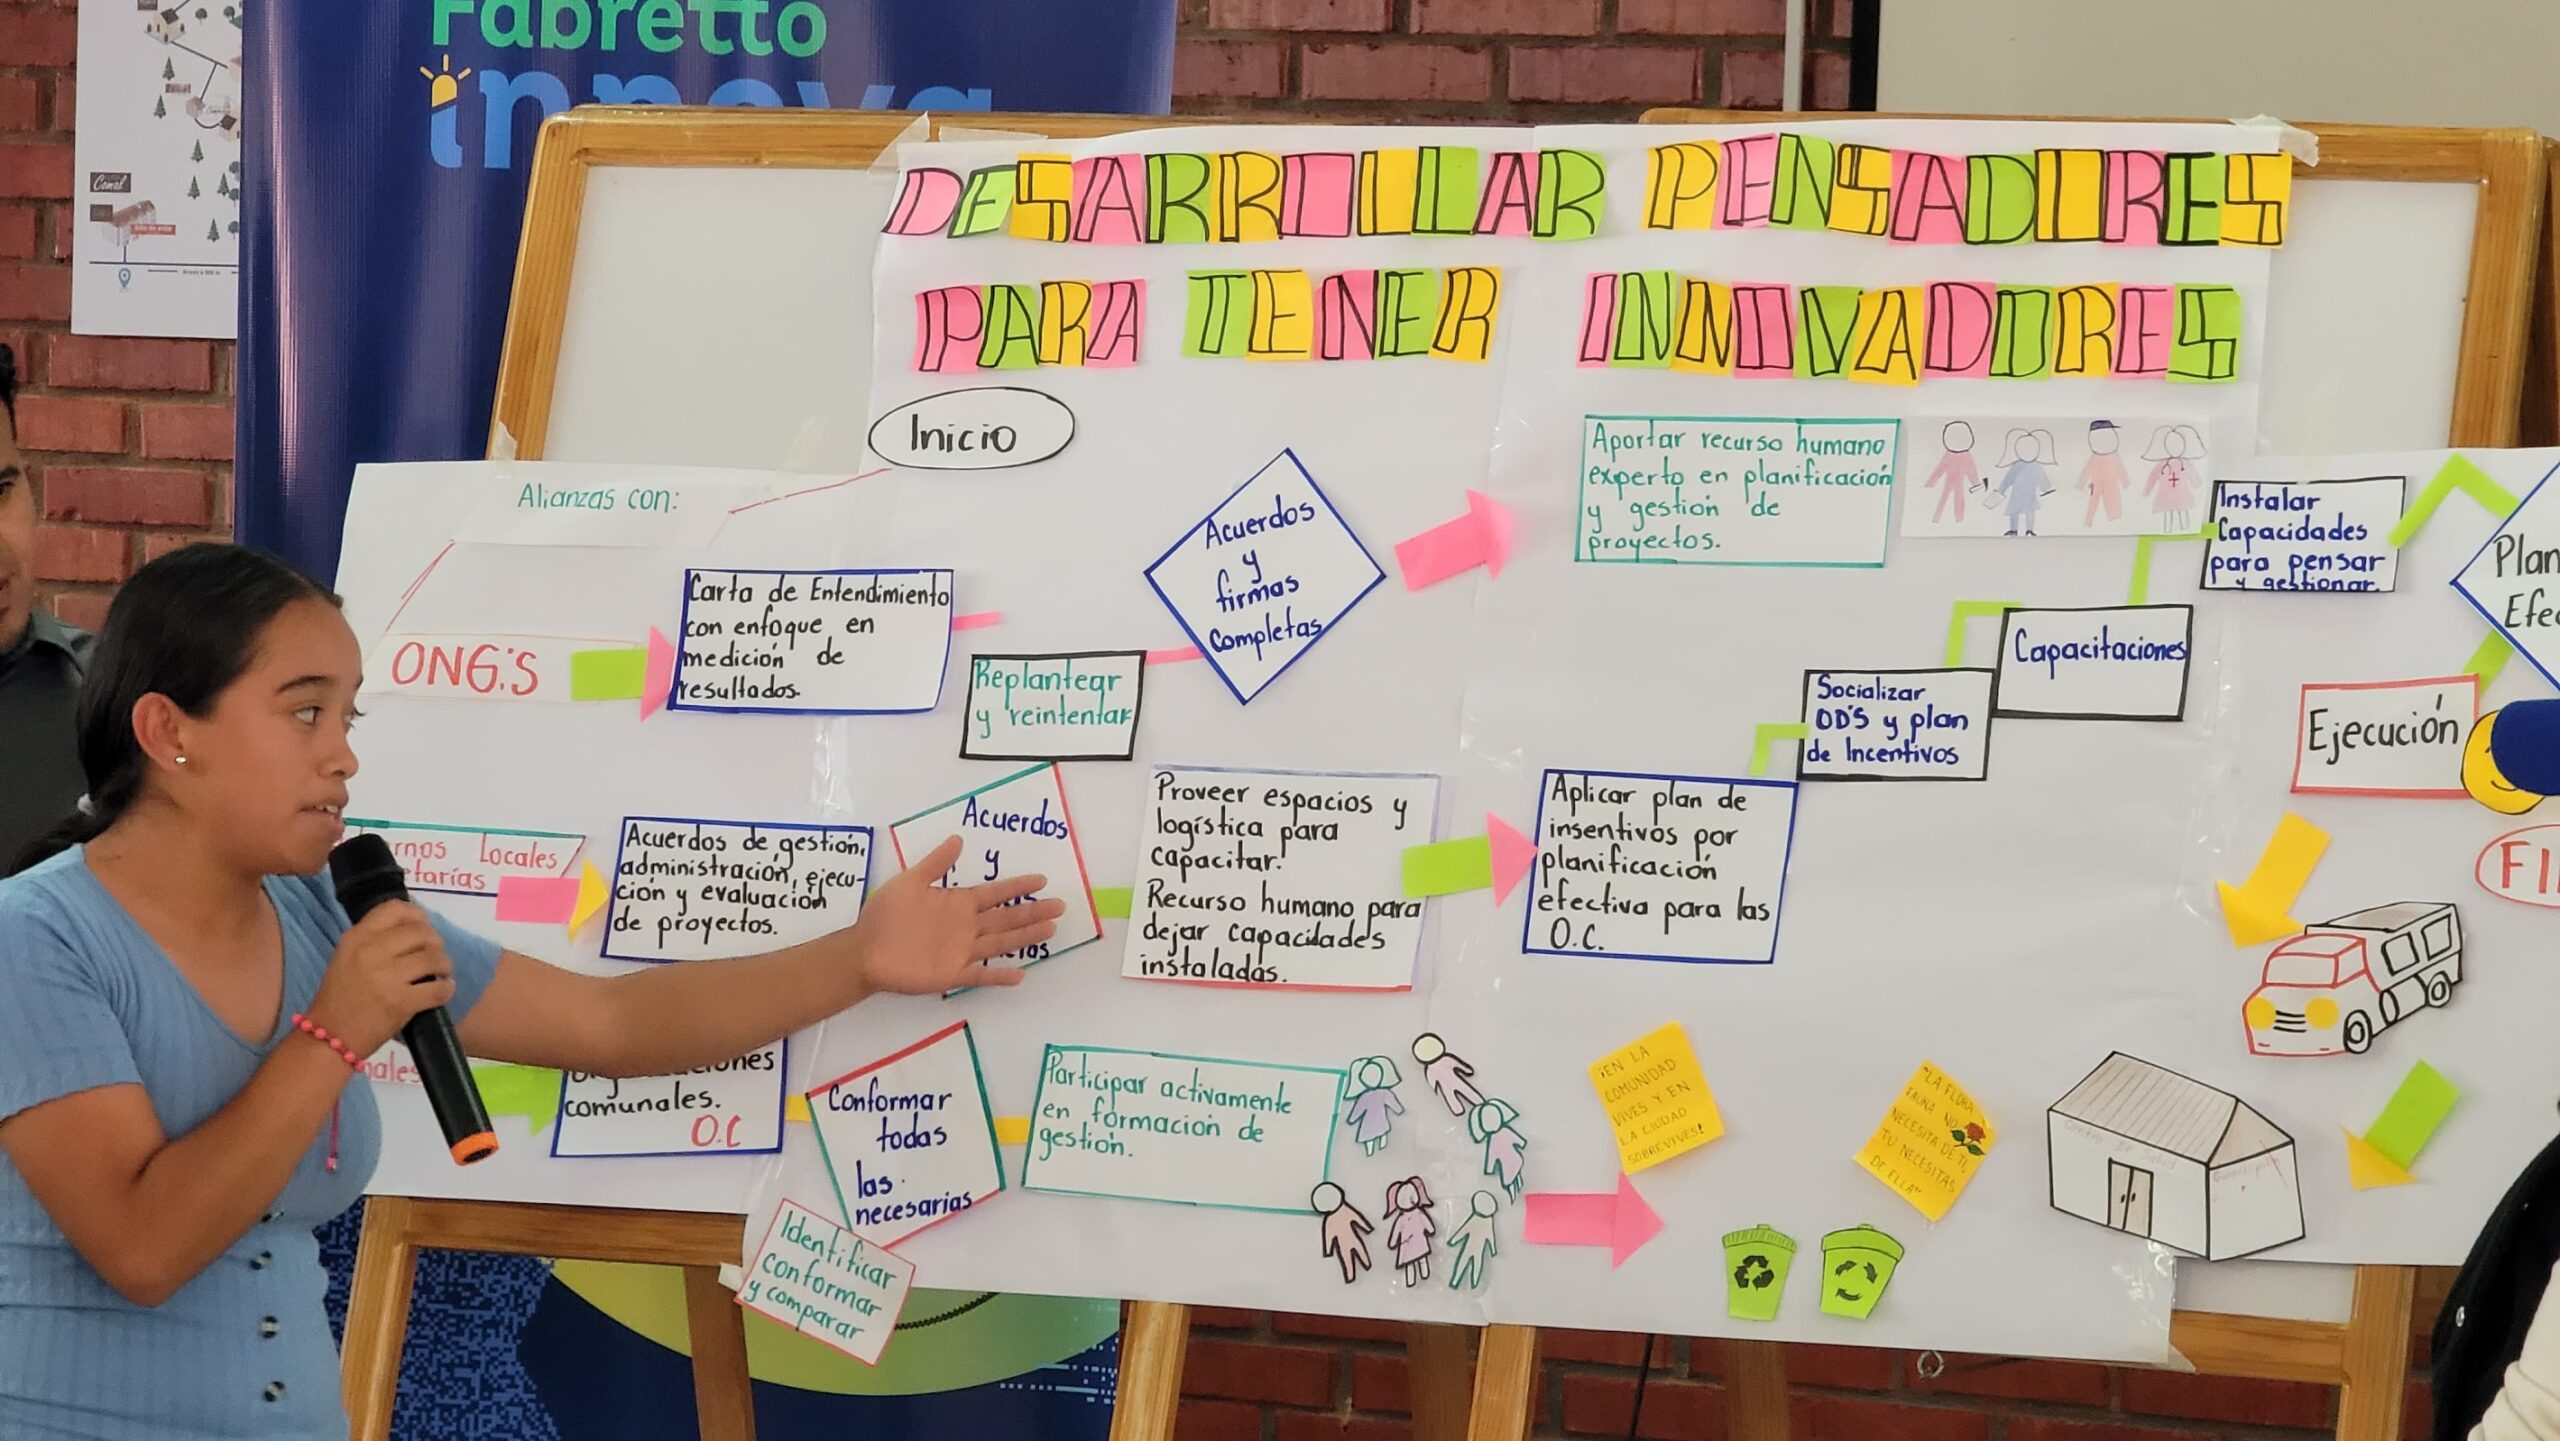 Fabretto
innova
Comal
DESARROLLAR PENSADORES
PARA TENER INNOVADORES
Inicio
Alianzas con:
ONG'S
Carta de Entendimiento
con enfoque en
medición de
resultados.
Replantear
y reintentar
Acuerdos
y
firmas
completas
Aportar recurso humano
experto en planificación
y gestión de
proyectos.
Locales
Acuerdos de gestión,
administración, ejecu-
ción y evaluación
de proyectos.
Acuerdos
y
Proveer espacios y
logística para
capacitar.
Recurso humano para
dejar capacidades
instaladas.
Aplicar plan de
insentivos por
planificación
efectiva para las
O.C.
Socializar
ODS y plan
de Incentivos
Capacitaciones
Instalar
Capacidades
para pensar
y gestionar.
Plan
Ejecución
FI
comunales.
O.C
Conformar
todas
las
necesarias
Identificar
conformar
y comparar
Participar activamente
en formación de
gestión.
¡EN LA
COMUNIDAD
VIVES Y EN
LA CIUDAD
SOBREVIVES!
"LA FLORA
FAUNA NO
NECESITA DE TI,
TU NECESITAS
DE ELLA"
Centro de Salud